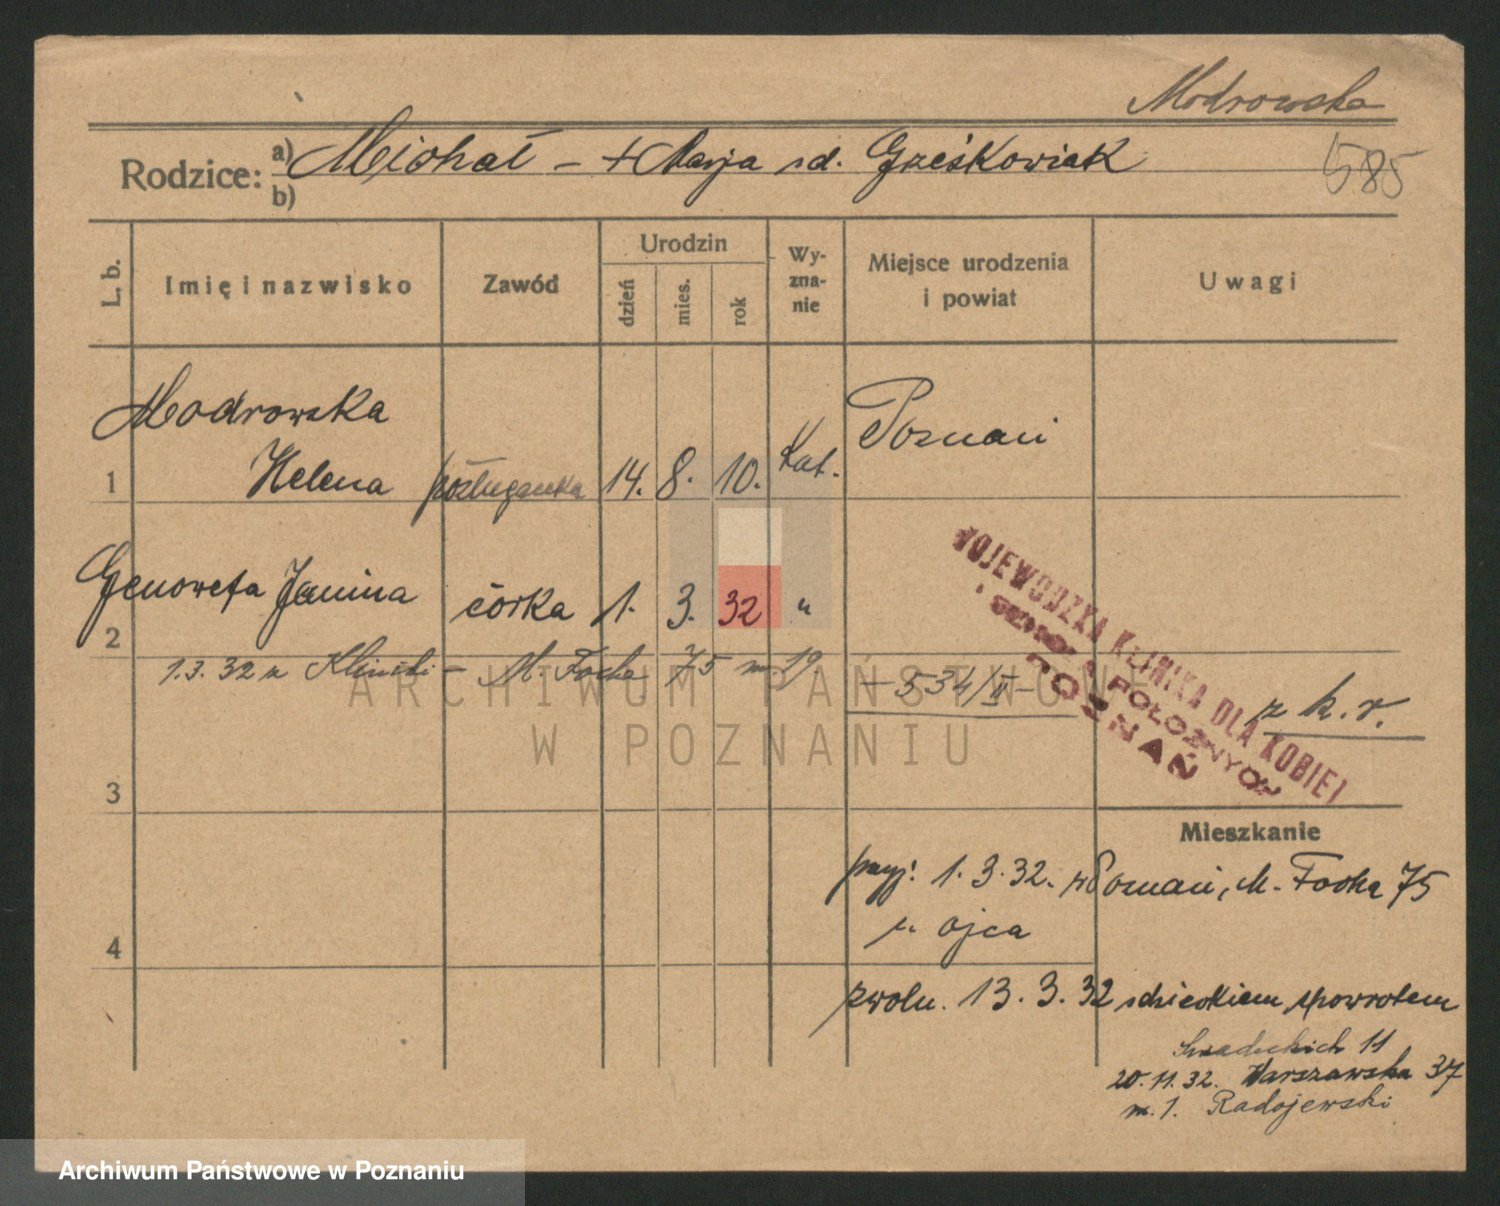 Modrowska
Rodzice: a) Michał – + Marja sd. Grześkowiak
b)
585
L. b.
Imię i nazwisko
Zawód
Urodzin
dzień
mies.
rok
Wy-
zna-
nie
Miejsce urodzenia
i powiat
Uwagi
Modrowska
1 Helena posługaczka 14. 8. 10. Kat. Poznań
2 Genowefa Janina córka 1. 3. 32 "
1.3.32 z Kliniki – M. Focha 75 m. 19 – 534/II –
z k. r.
WOJEWÓDZKA KLINIKA DLA KOBIET
I SZKOŁA POŁOŻNYCH
POZNAŃ
3
Mieszkanie
przyj. 1.3.32. w Poznań, M. Focha 75
u ojca
4
zwoln. 13.3.32 z dzieckiem spowrotem
Śniadeckich 11
20.11.32. Warszawska 37
m. 1. Radojewski
ARCHIWUM PAŃSTWOWE
W POZNANIU
Archiwum Państwowe w Poznaniu